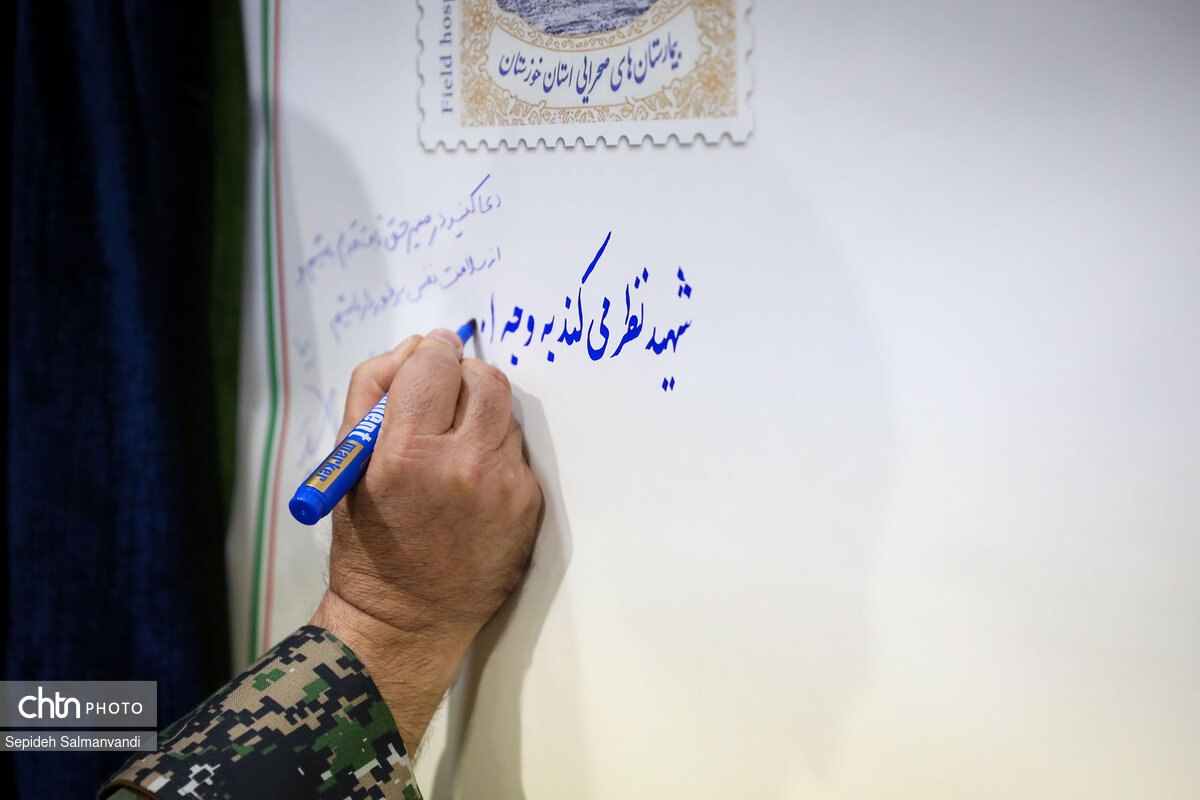 Field hosp
بیمارستان‌های صحرایی استان خوزستان
دعا کنید در مسیر عشق ثابت قدم باشیم و
از سلامت نفس برخوردار باشیم
شهید نظر می کند به وجه ا
marker
chtn PHOTO
Sepideh Salmanvandi